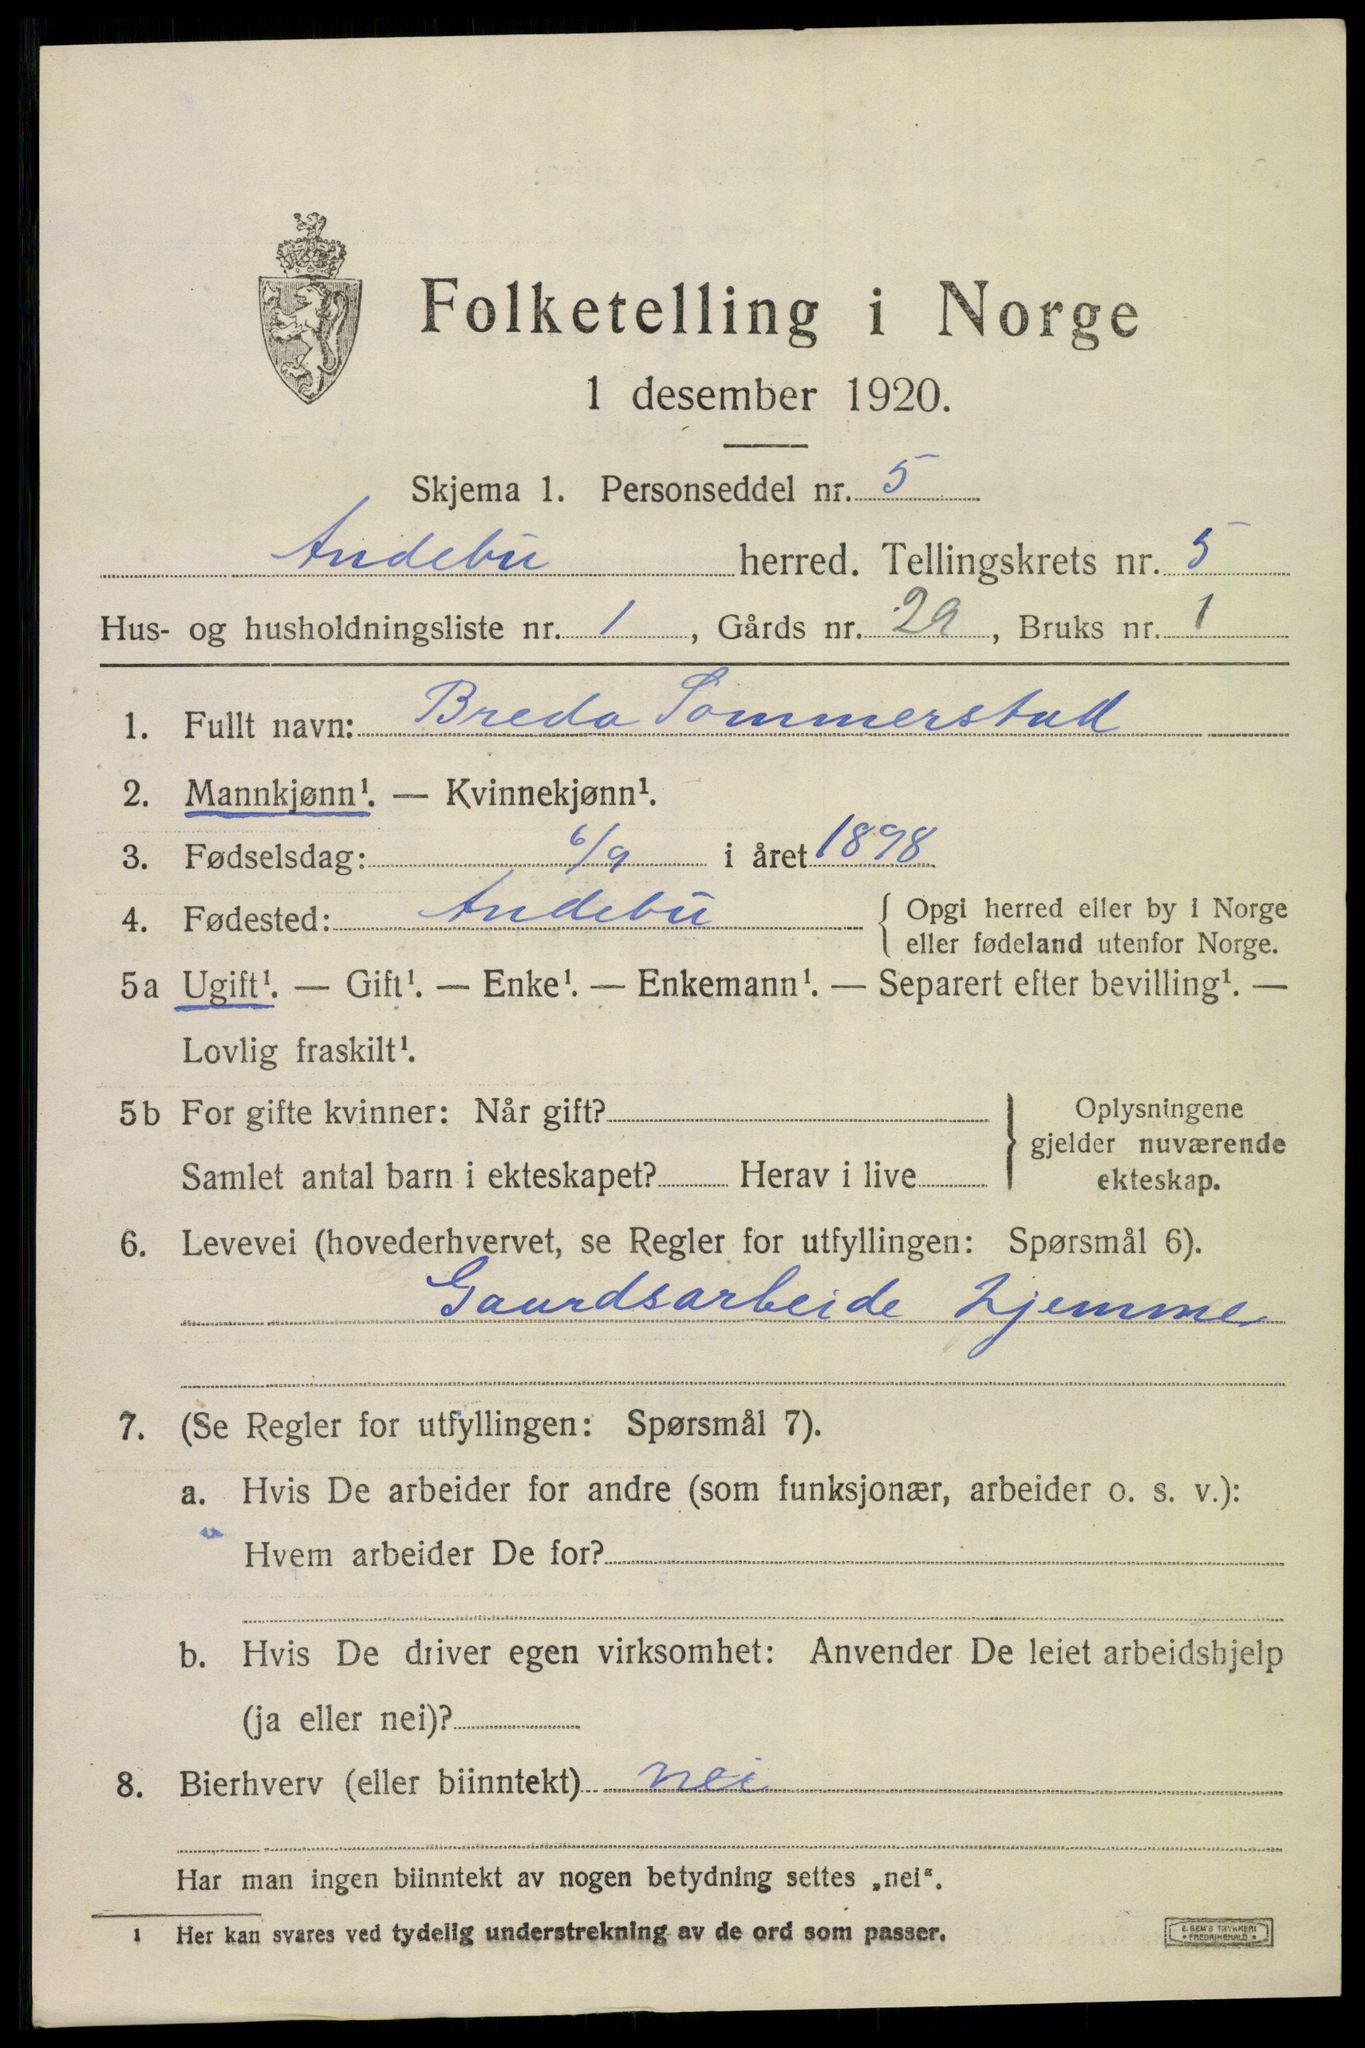 Folketelling i Norge
1 desember 1920.
Skjema 1. Personseddel nr. 5
Andebu herred. Tellingskrets nr. 5
Hus- og husholdningsliste nr. 1, Gårds nr. 29, Bruks nr. 1
1. Fullt navn: Breda Sommerstad
2. Mannkjønn¹. — Kvinnekjønn¹.
3. Fødselsdag: 6/9 i året 1898
4. Fødested: Andebu { Opgi herred eller by i Norge
eller fødeland utenfor Norge.
5a Ugift¹. — Gift¹. — Enke¹. — Enkemann¹. — Separert efter bevilling¹. —
Lovlig fraskilt¹.
5b For gifte kvinner: Når gift?
Samlet antal barn i ekteskapet? Herav i live
} Oplysningene
gjelder nuværende
ekteskap.
6. Levevei (hovederhvervet, se Regler for utfyllingen: Spørsmål 6).
Gaardsarbeide hjemme
7. (Se Regler for utfyllingen: Spørsmål 7).
a. Hvis De arbeider for andre (som funksjonær, arbeider o. s. v.):
Hvem arbeider De for?
b. Hvis De driver egen virksomhet: Anvender De leiet arbeidshjelp
(ja eller nei)?
8. Bierhverv (eller biinntekt) nei
Har man ingen biinntekt av nogen betydning settes „nei“.
1 Her kan svares ved tydelig understrekning av de ord som passer.
E. SEM'S TRYKKERI
FREDRIKSHALD